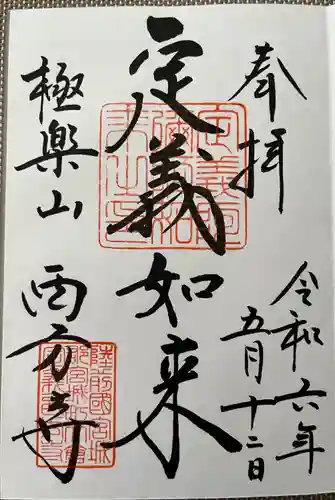 奉拝
令和六年
五月十二日
定義如来
極楽山
西方寺